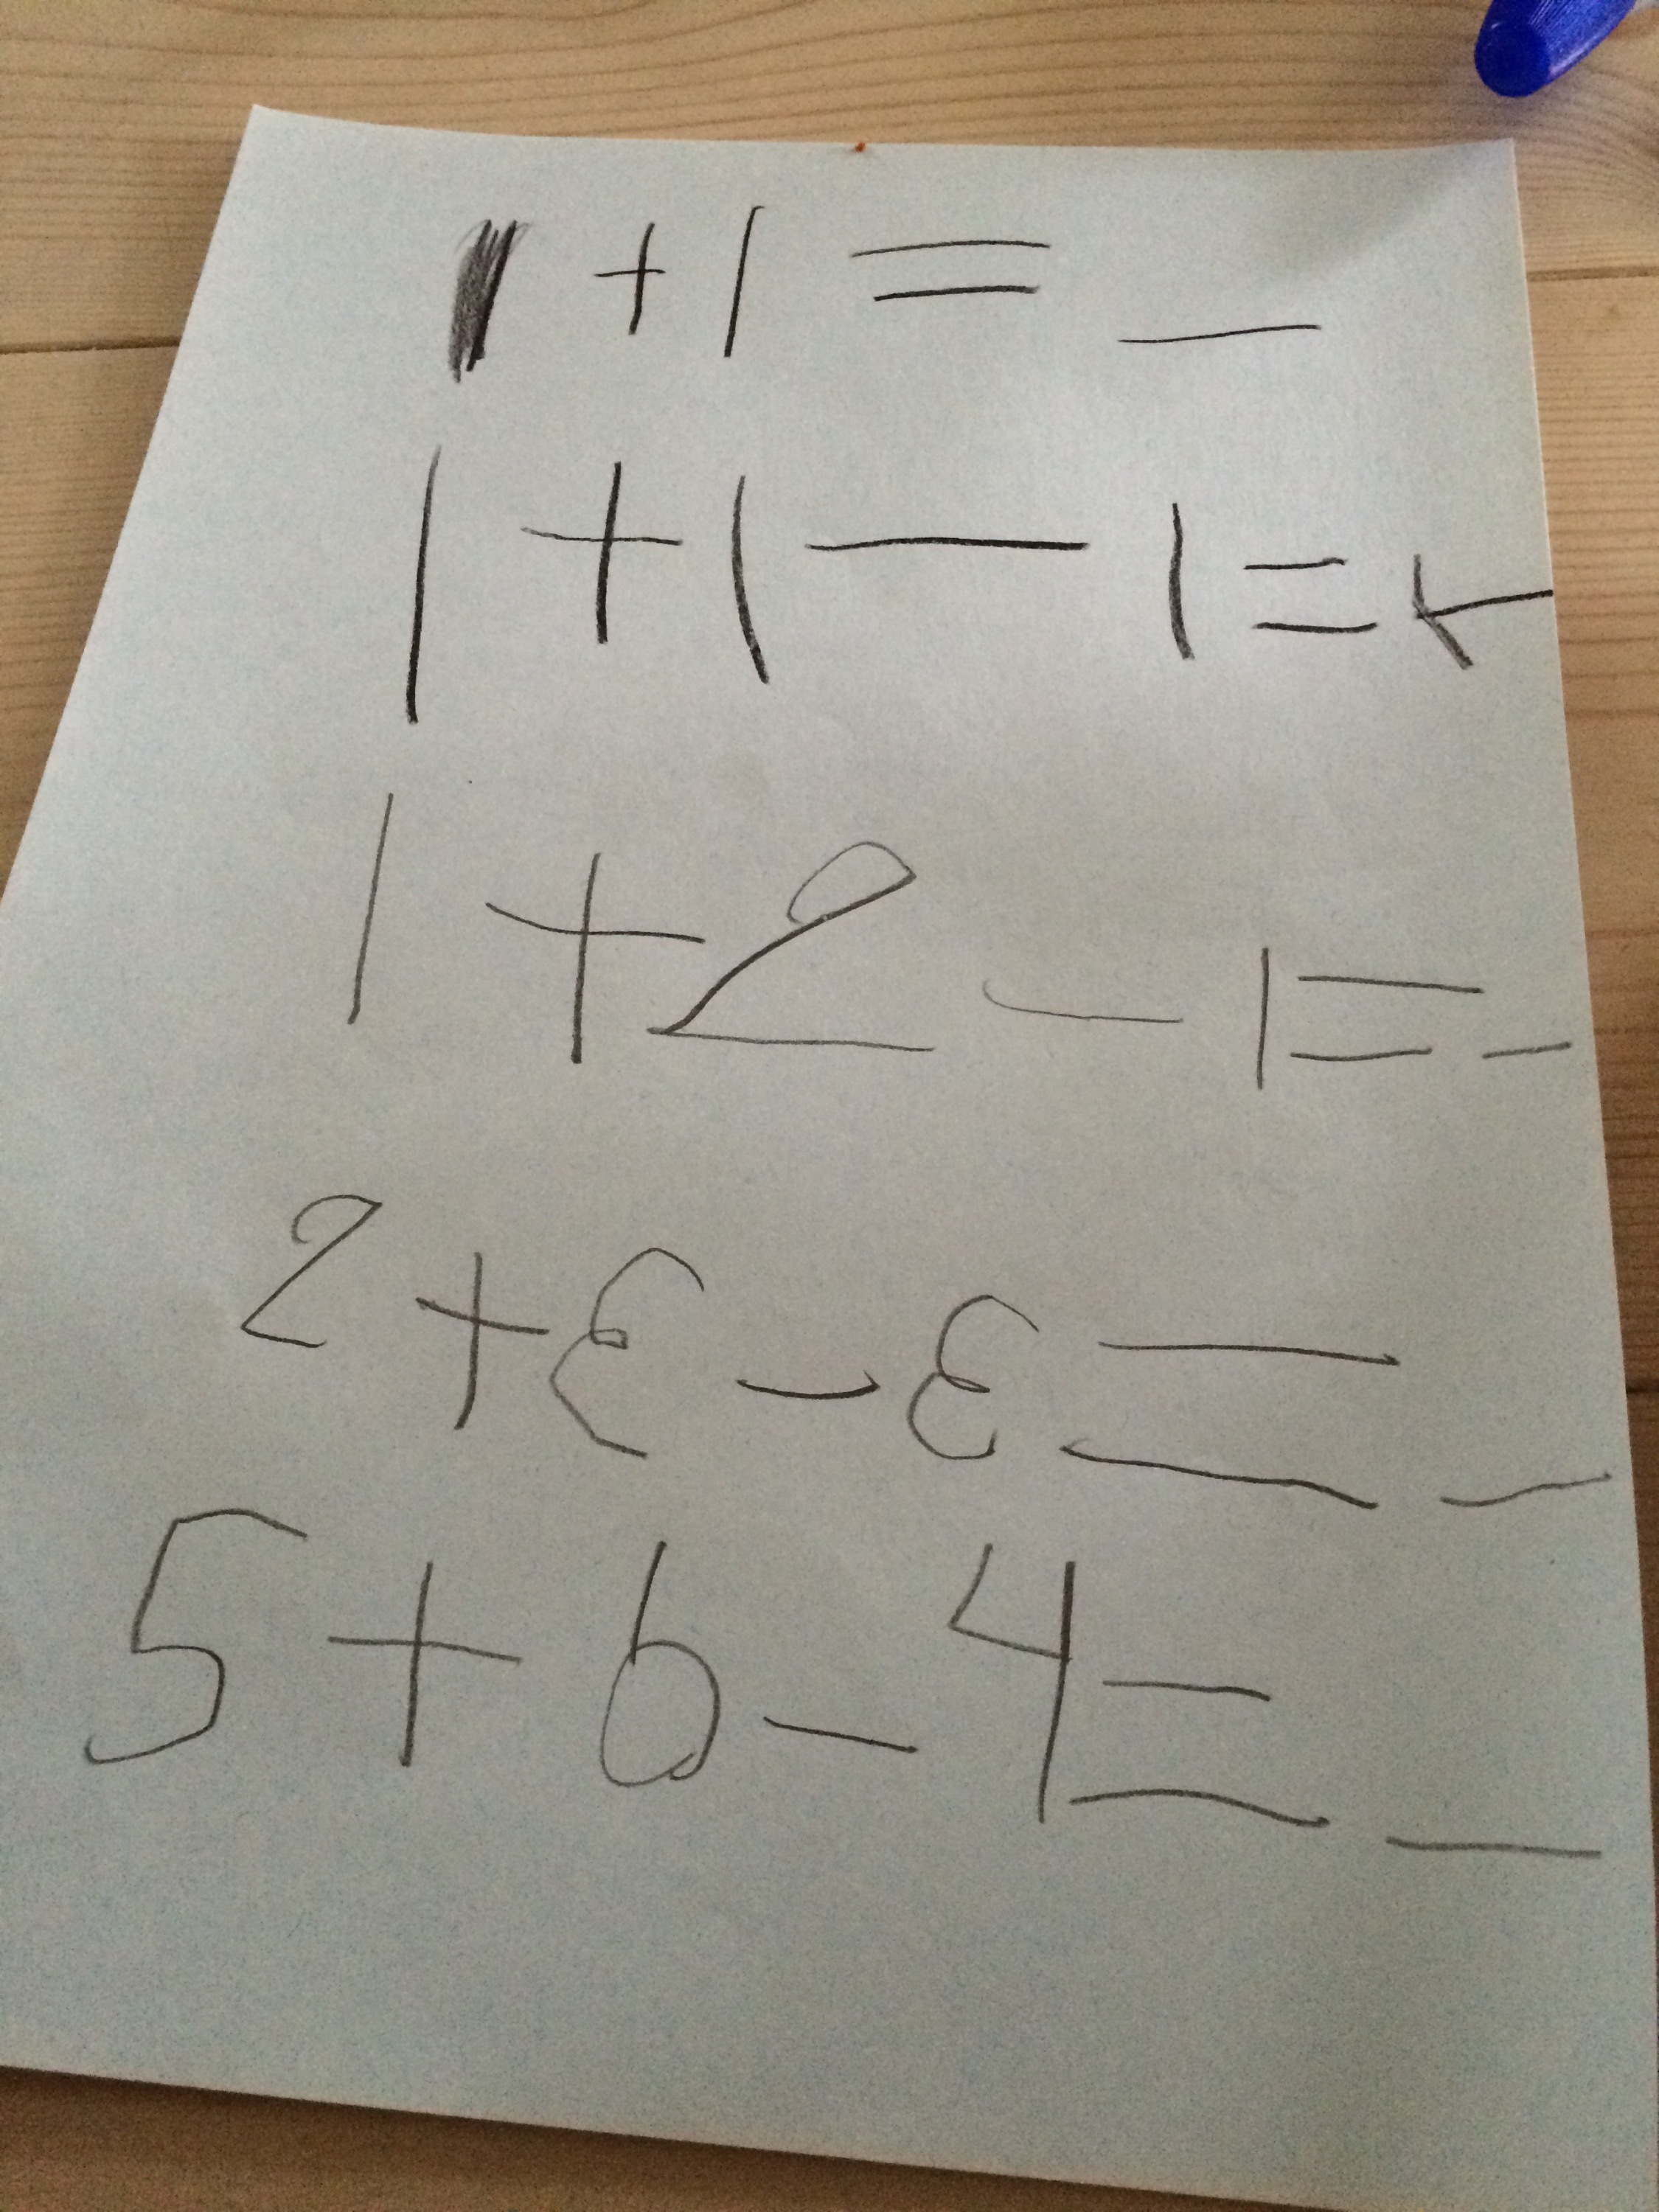 1 + 1 = _
1 + 1 - 1 =
1 + 2 - 1 = _
2 + 3 - 3 = _
5 + 6 - 4 = _